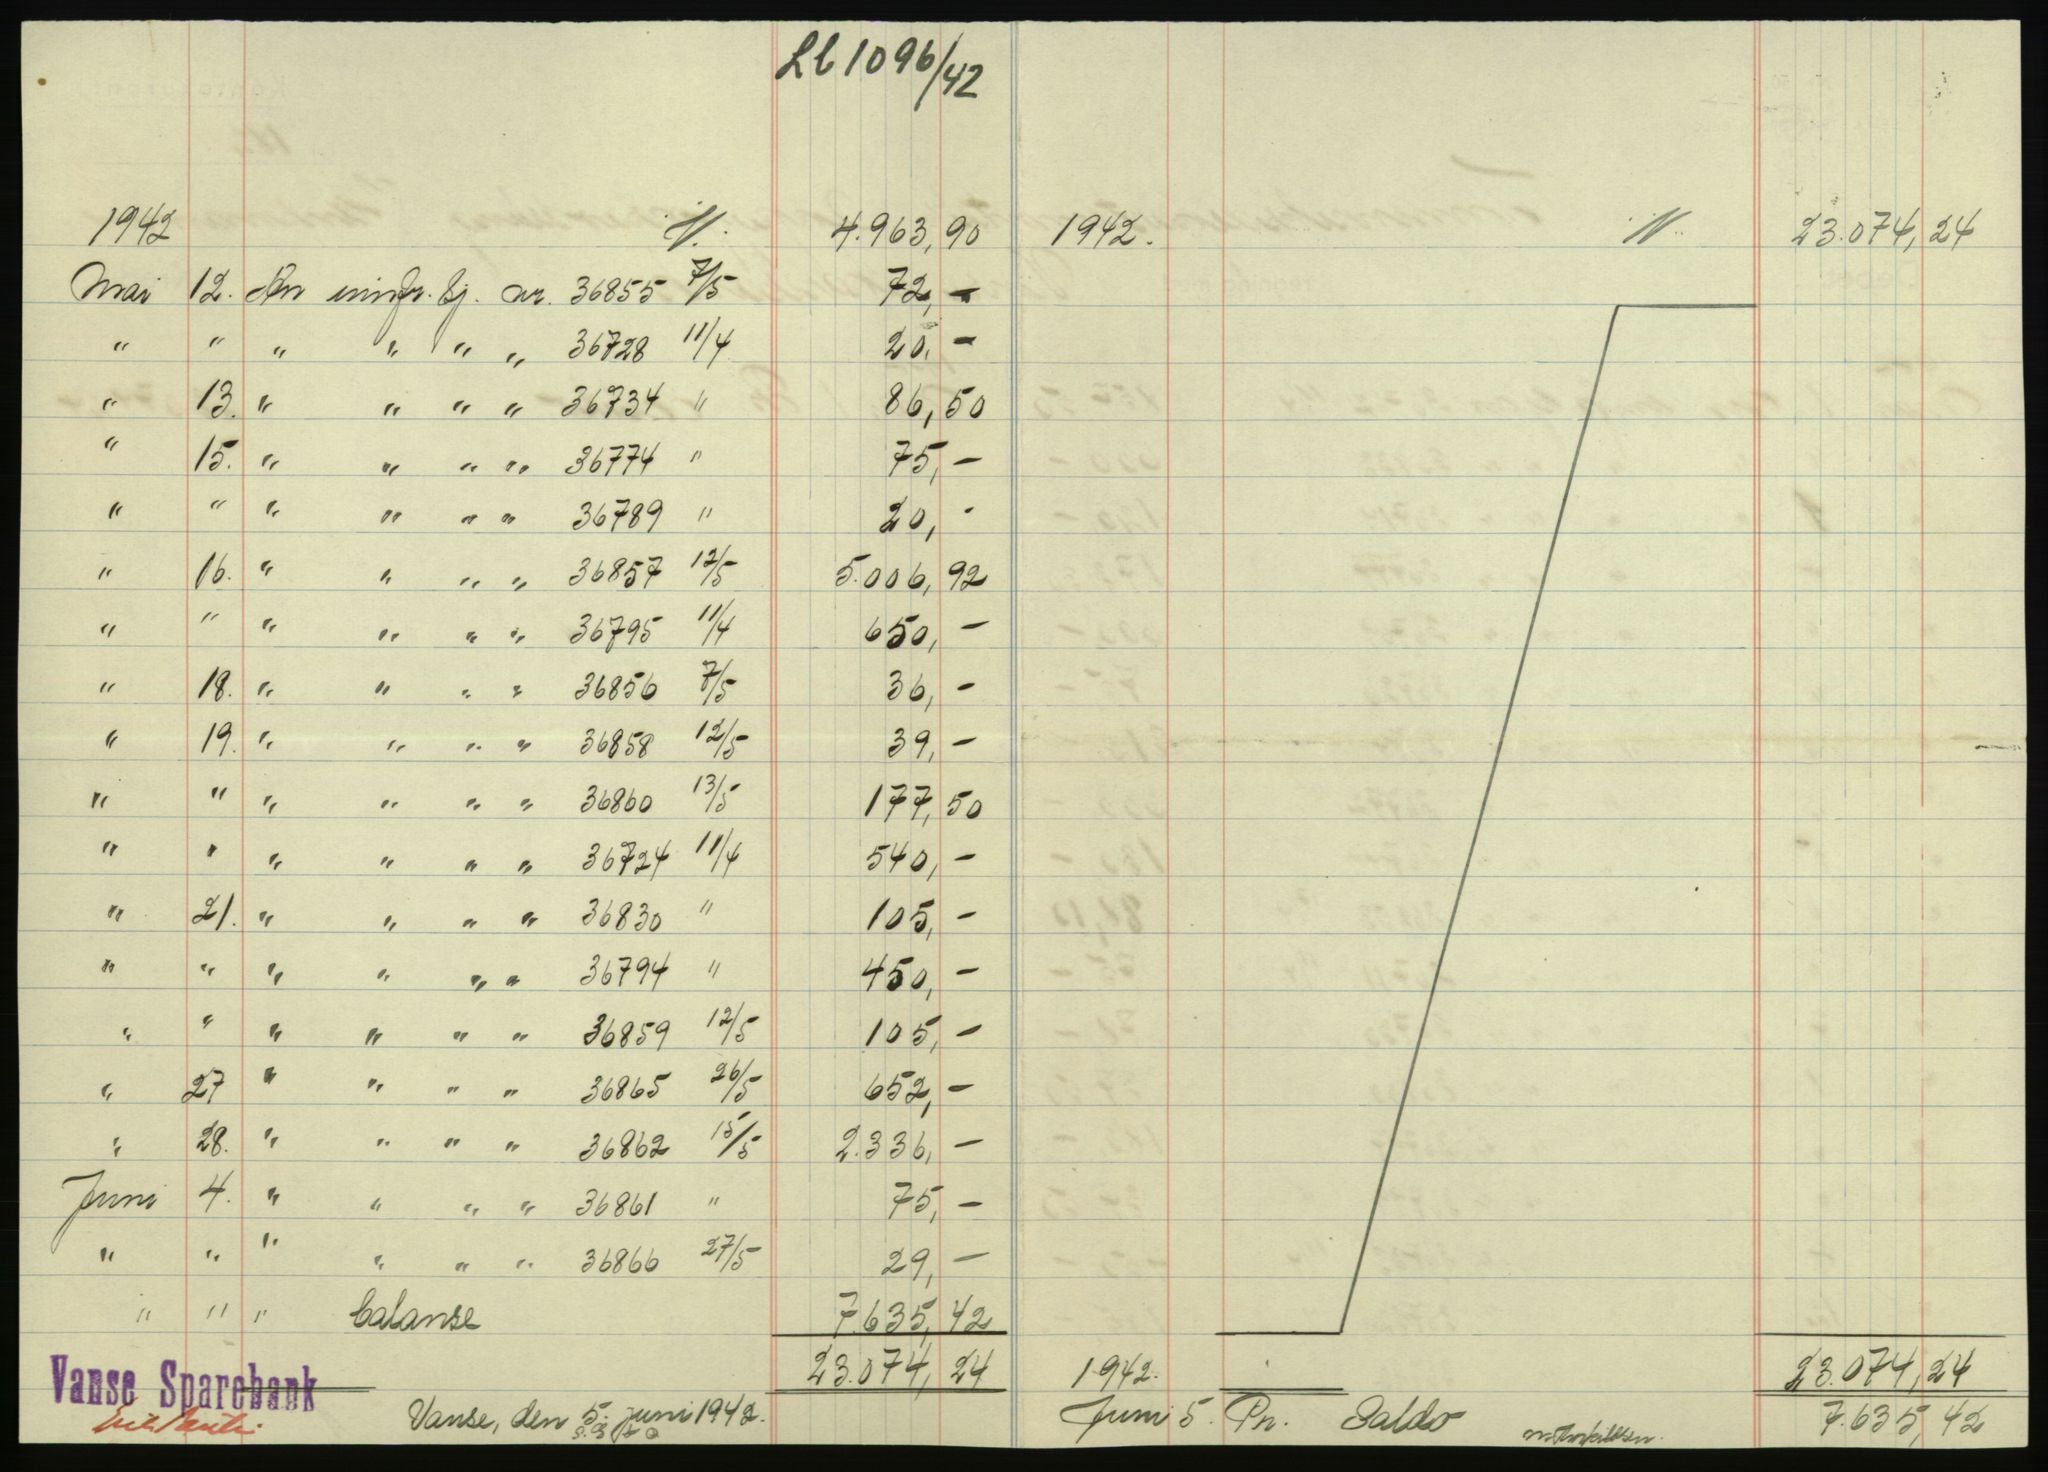 Lb 1096/42
1942 4.963,90
Mai 12. An innfr. sj. nr. 36855 7/5 72,-
" " " " " " 36728 11/4 20,-
" 13. " " " " 36734 " 86,50
" 15. " " " " 36774 " 75,-
" " " " " " 36789 " 20,-
" 16. " " " " 36857 12/5 5.006,92
" " " " " " 36795 11/4 650,-
" 18. " " " " 36856 7/5 36,-
" 19. " " " " 36858 12/5 39,-
" " " " " " 36860 13/5 177,50
" " " " " " 36724 11/4 540,-
" 21. " " " " 36830 " 105,-
" " " " " " 36794 " 450,-
" " " " " " 36859 12/5 105,-
" 27 " " " " 36865 26/5 652,-
" 28. " " " " 36862 15/5 2.336,-
Juni 4. " " " " 36861 " 75,-
" " " " " " 36866 27/5 29,-
" " " balanse 7.635,42
23.074,24
Vanse Sparebank
Vanse, den 5. juni 1942.
1942. 23.074,24
1942. 23.074,24
Juni 5. Pr. Saldo 7.635,42